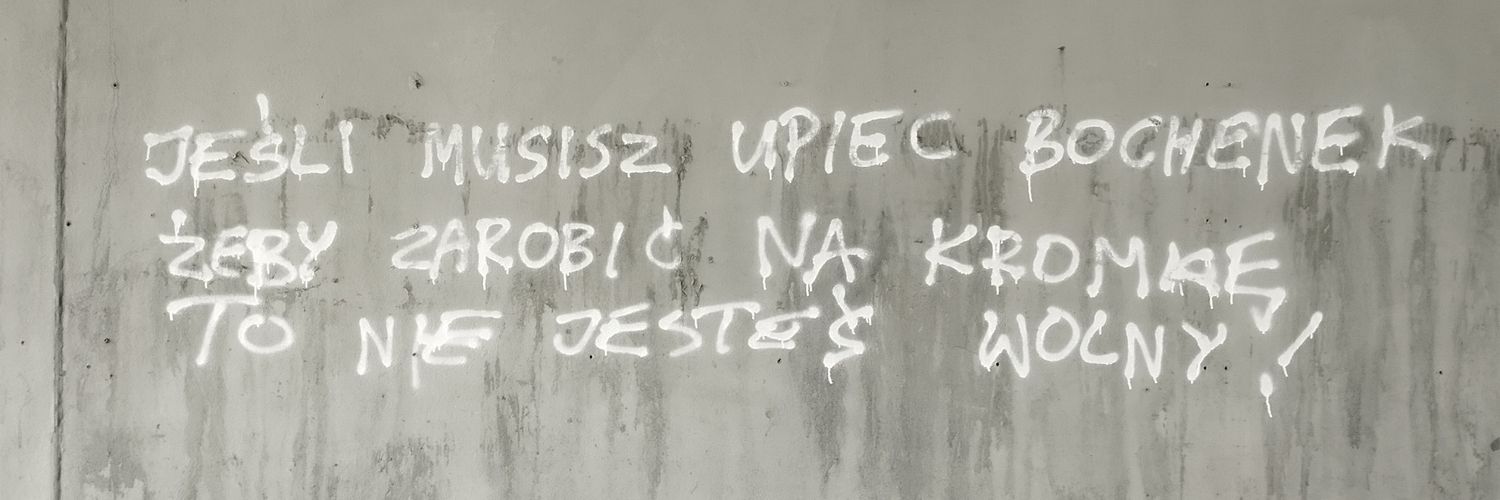 JEŚLI MUSISZ UPIEC BOCHENEK
ŻEBY ZAROBIĆ NA KROMKĘ
TO NIE JESTEŚ WOLNY!